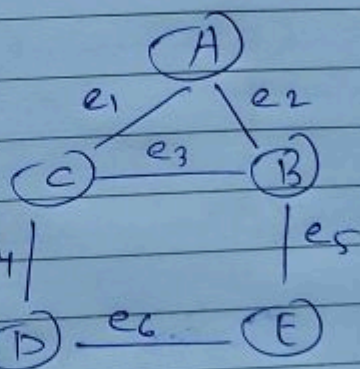 A
e1 e2
C e3 B
4 e5
D e6 E